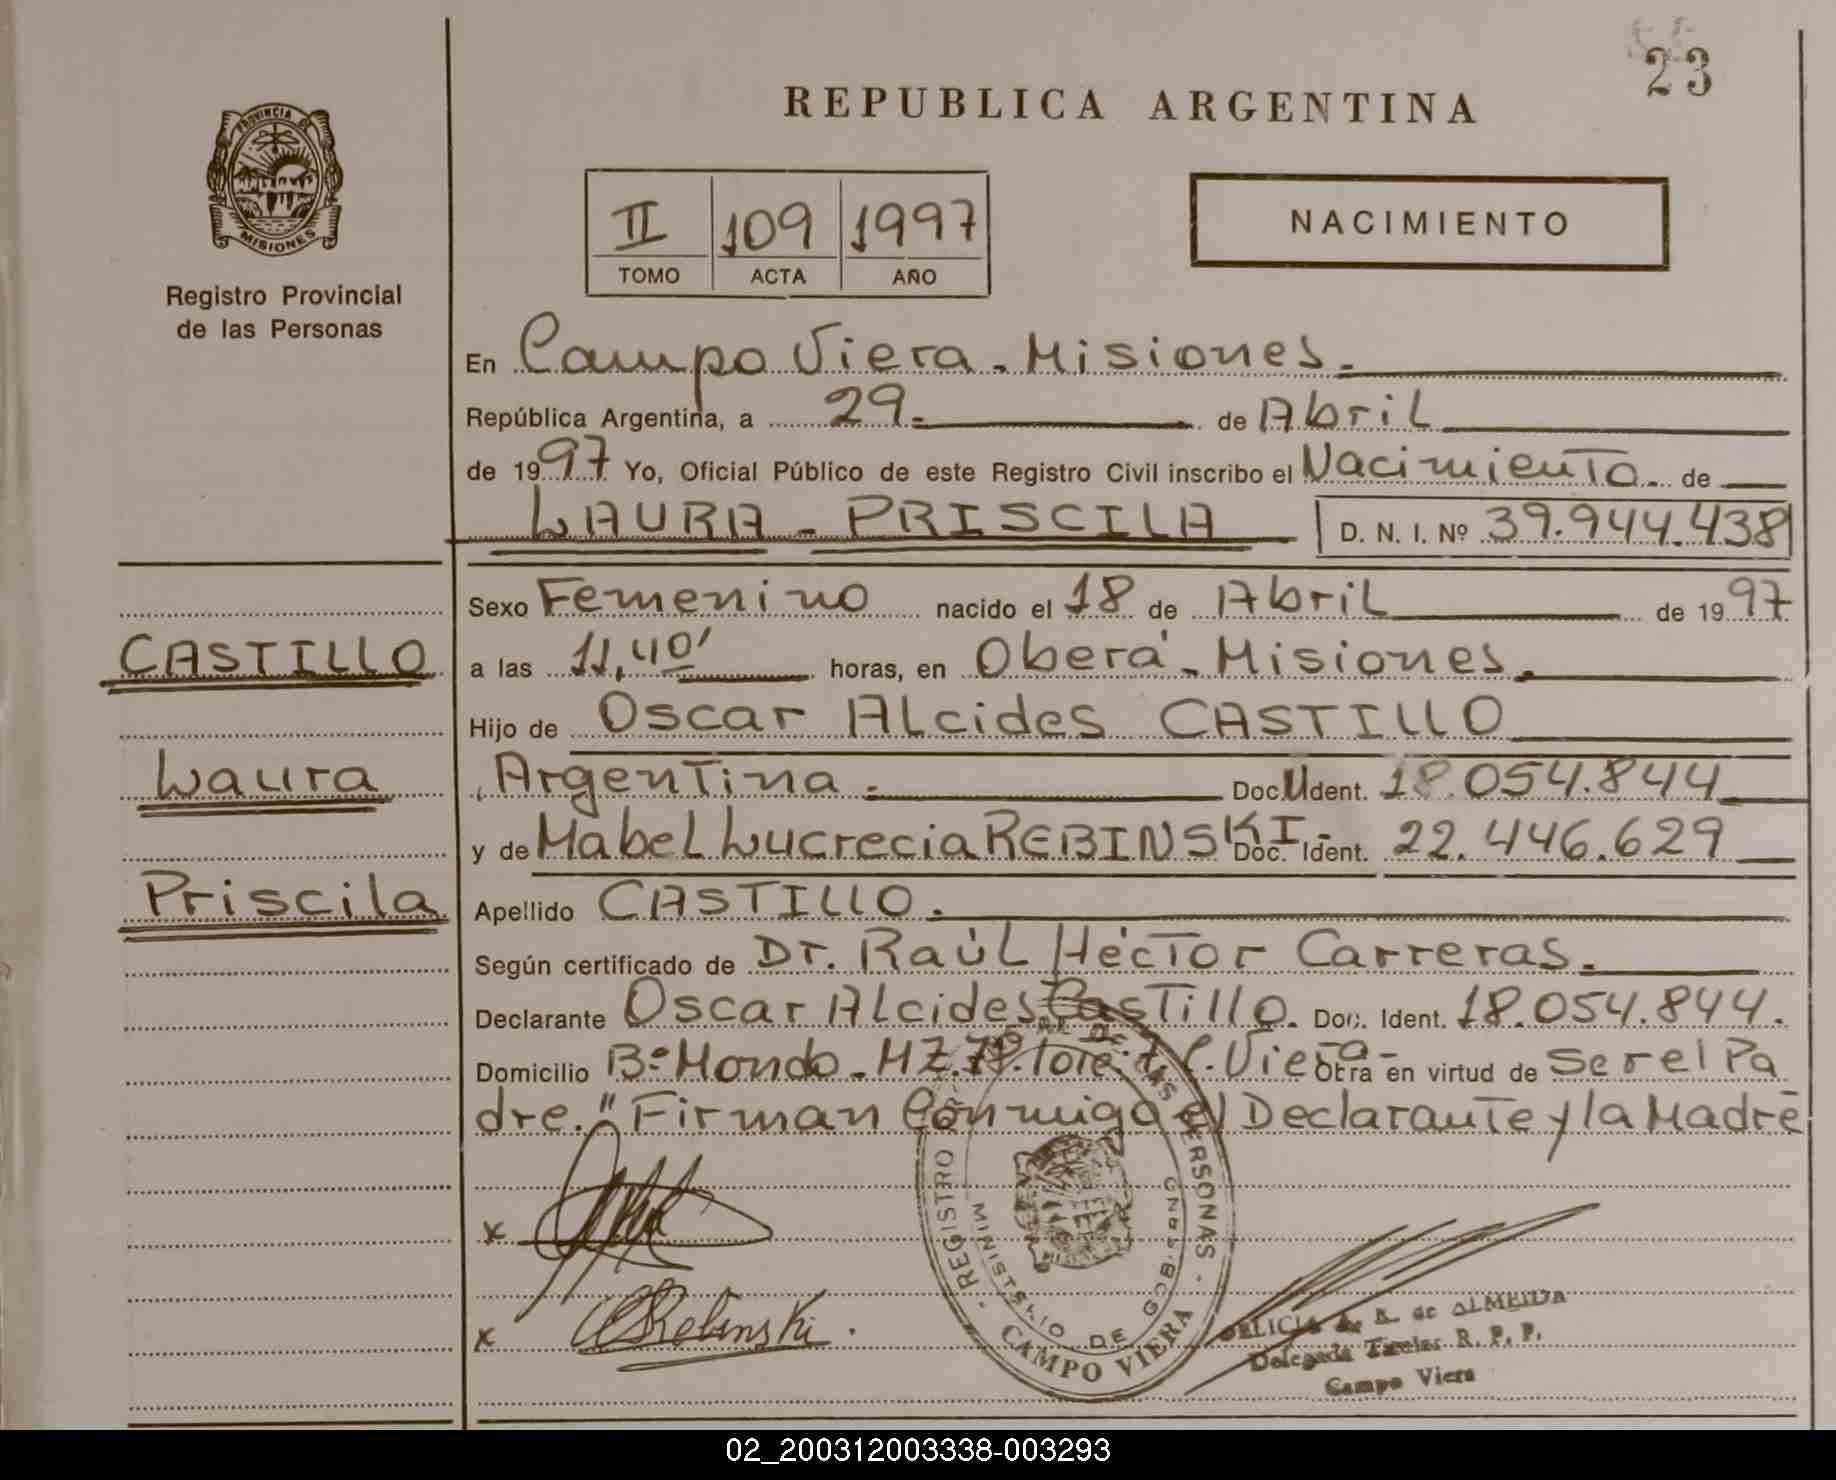 23
REPUBLICA ARGENTINA
PROVINCIA DE
MISIONES
Registro Provincial
de las Personas
II 109 1997
TOMO ACTA AÑO
NACIMIENTO
En Campo Viera - Misiones.
República Argentina, a 29 de Abril
de 1997 Yo, Oficial Público de este Registro Civil inscribo el Nacimiento de
LAURA - PRISCILA D. N. I. Nº 39.944.438
Sexo Femenino nacido el 18 de Abril de 1997
CASTILLO
a las 11,40' horas, en Oberá - Misiones.
Hijo de Oscar Alcides CASTILLO
Laura
Argentina. Doc. Ident. 18.054.844
y de Mabel Lucrecia REBINSKI - Doc. Ident. 22.446.629
Priscila
Apellido CASTILLO.
Según certificado de Dr. Raúl Héctor Carreras.
Declarante Oscar Alcides Castillo. Doc. Ident. 18.054.844.
Domicilio Bº Mondo - MZ. C. Viera - otra en virtud de Ser el Pa
dre." Firman Conmigo el Declarante y la Madre
x
x Rebinski.
REGISTRO DE LAS PERSONAS
MINISTERIO DE GOB.
CAMPO VIERA
DELICIA de A. de ALMEIDA
Delegada Titular R. P. P.
Campo Viera
02_200312003338-003293